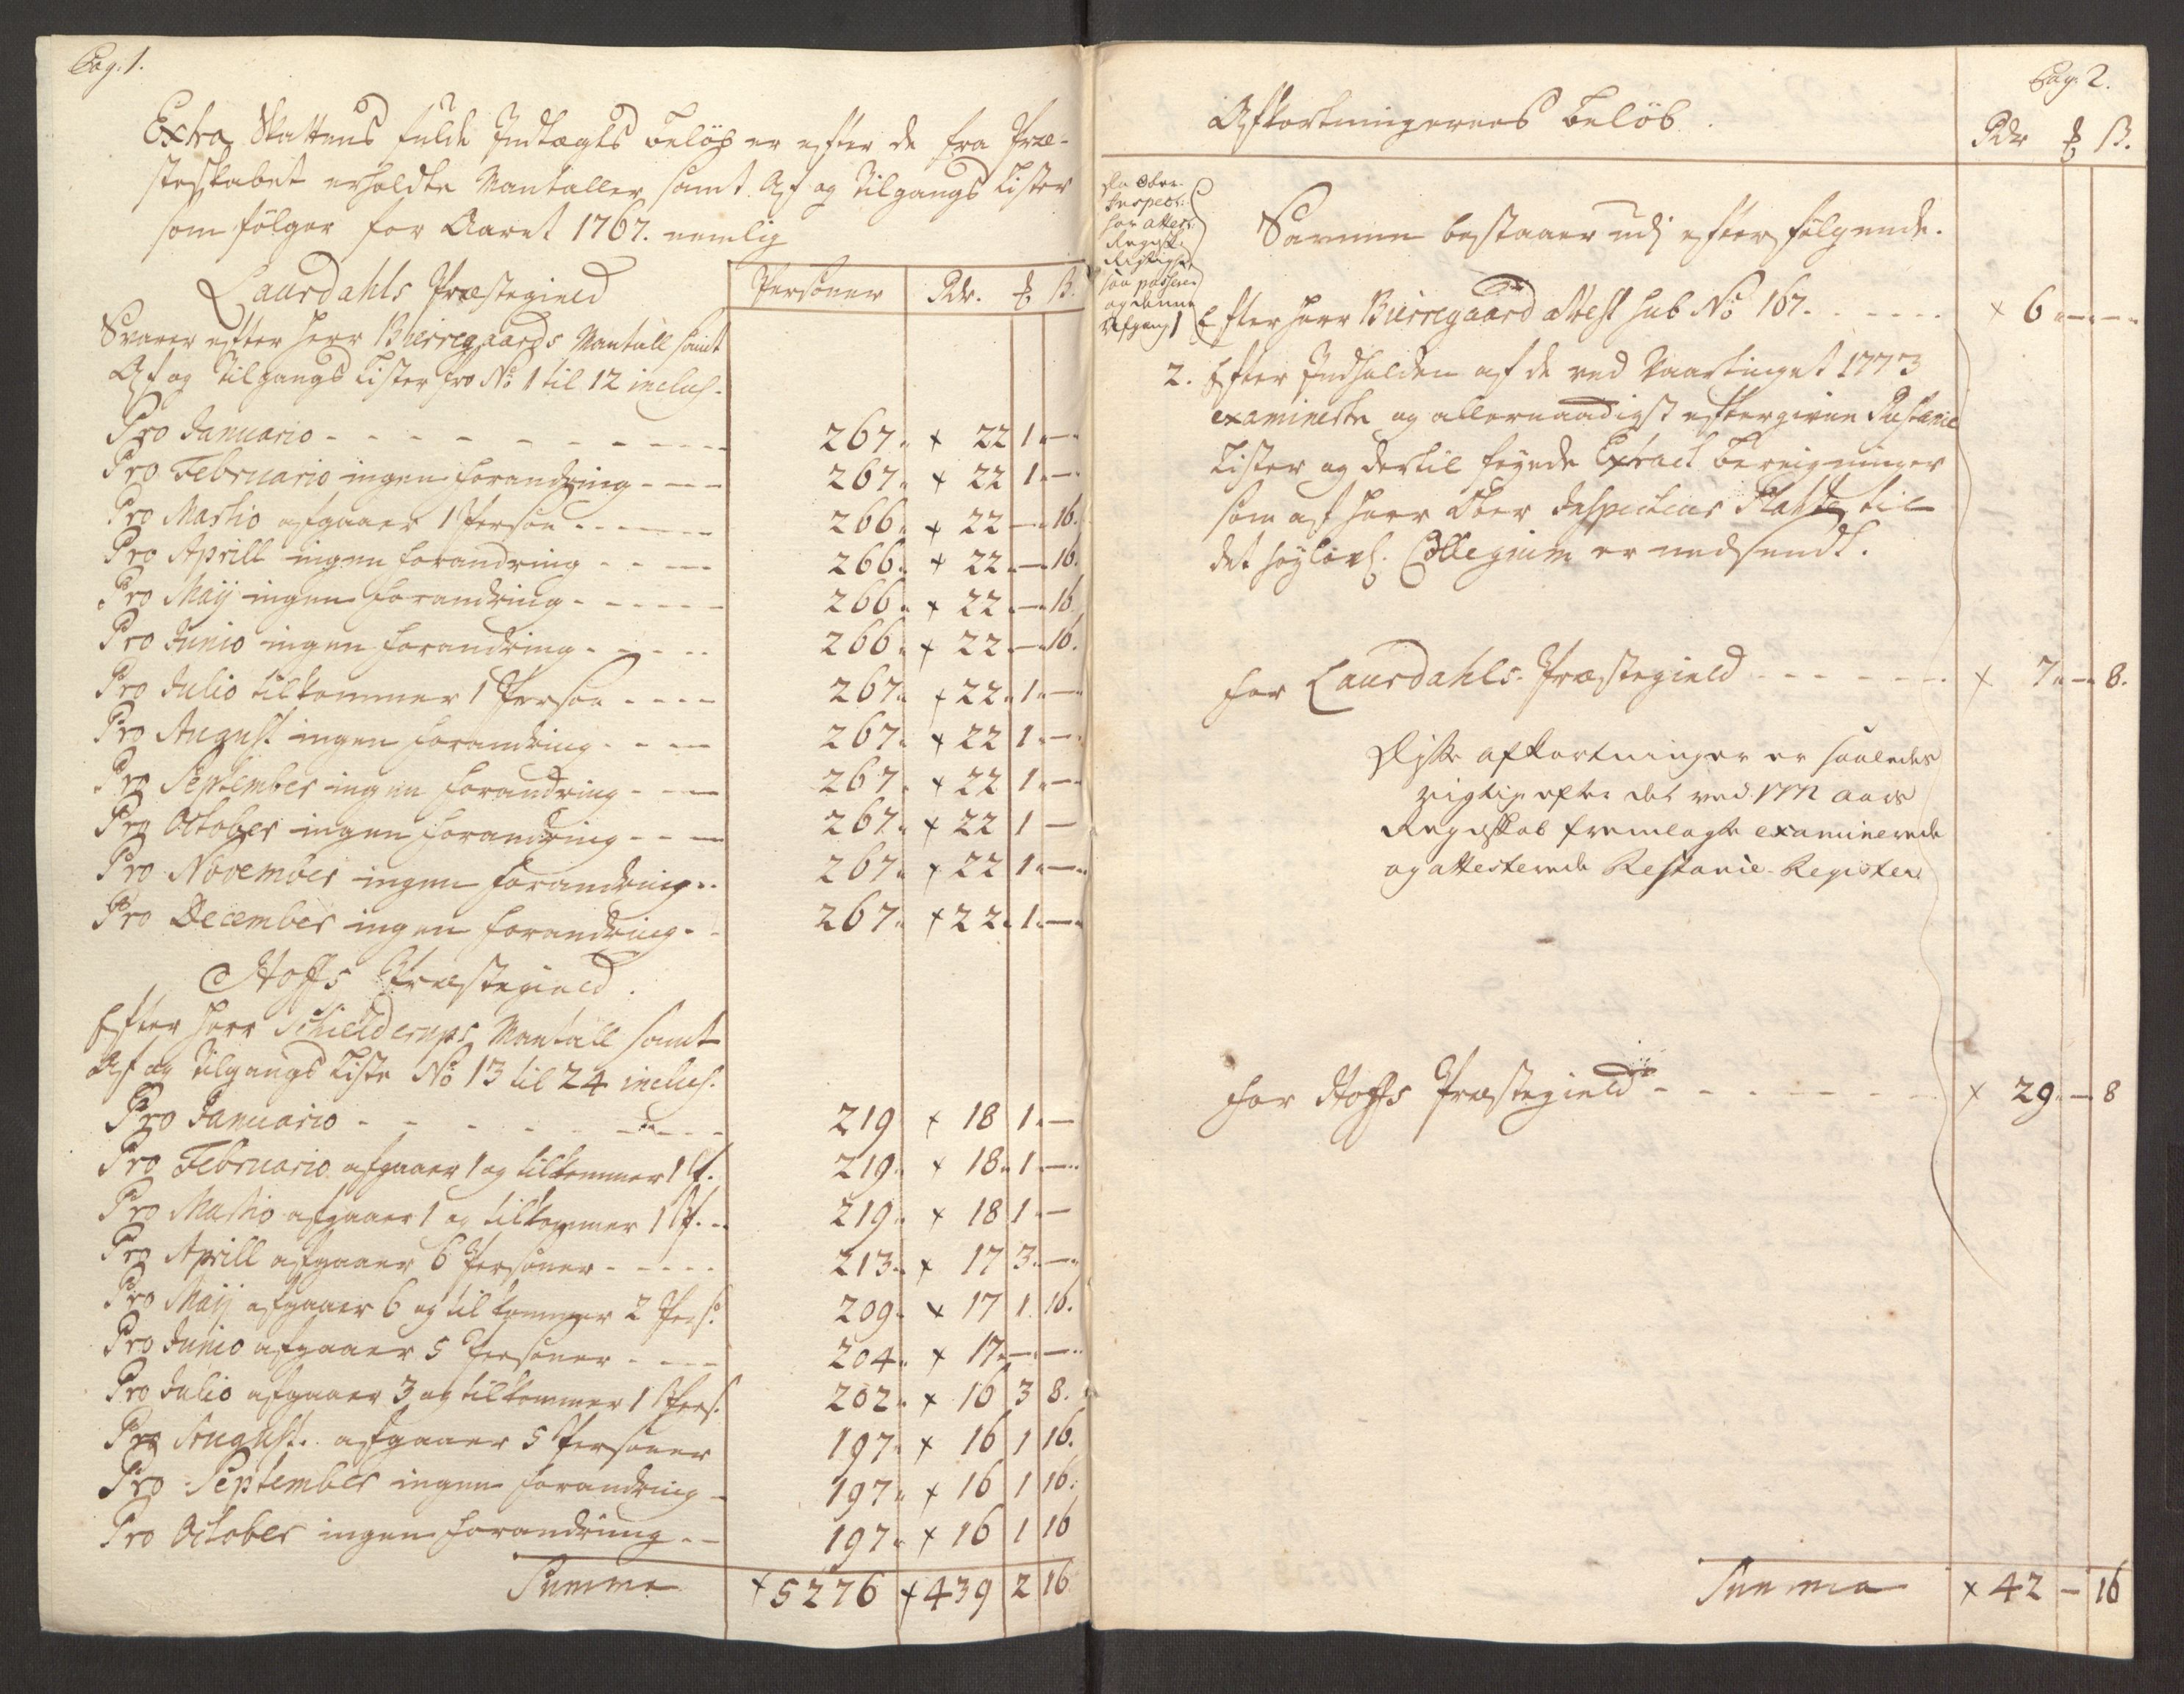 Pag: 1.
Extra Skattens fulde Indtægts Beløb er efter de fra Præ-
steskabet erholdte Mantaller samt Af og Tilgangs Lister
som følger for Aaret 1767. nemlig
Laurdahls Præstegield
Personer Rdr. ß.
Svarer efter Herr Bierregaards Mantall samt
Af og Tilgangs Lister fro No 1 til 12 inclus.
Pro Januario - - - - - - - - - 267. x 22 1. —
Pro Februario ingen forandring - - - 267. x 22 1. —
Pro Martio afgaaer 1 Person - - - - - 266. x 22 — 16.
Pro Aprill ingen forandring - - - - 266. x 22. — 16.
Pro Maij ingen forandring - - - - - 266. x 22. — 16
Pro Junio ingen forandring - - - - 266. x 22. — 16.
Pro Julio tilkommer 1 Person - - - - 267. x 22. 1. —
Pro August ingen forandring - - - 267. x 22 1. —
Pro September ingen forandring - - - 267. x 22 1. —
Pro October ingen forandring - - - 267. x 22 1 —
Pro November ingen forandring - - 267. x 22 1. —
Pro December ingen forandring - - 267. x 22. 1. —
Hoffs Præstegield.
Efter Herr Schielderups Mantall samt
Af og Tilgangs Liste No 13 til 24 inclus.
Pro Januario - - - - - - - - 219 x 18 1. —
Pro Februario afgaaer 1 og tilkommer 1 P. 219. x 18. 1. —
Pro Martio afgaaer 1 og tilkommer 1 P. - 219. x 18 1. —
Pro Aprill afgaaer 6 Personer - - - - - 213. x 17 3. —
Pro Maij afgaaer 6 og tilkommer 2 Pers: 209. x 17 1. 16.
Pro Junio afgaaer 5 Personer - - - - 204. x 17. — —
Pro Julio afgaaer 3 og tilkommer 1 Pers. 202. x 16 3 8.
Pro August. afgaaer 5 Personer 197. x 16 1 16.
Pro September ingen forandring - 197. x 16 1 16.
Pro October ingen forandring - - 197. x 16 1 16
Summa x 5276 x 439 2 16
Pag: 2.
Afkortningernes Beløb.
Rdr ß.
Da Ober
Inspect:
har attest:
Rigtighed
saa passerer
og denne
Afgang
Summen bestaaer udi efterfølgende.
1 Efter Herr Bierregaard Attest sub No 167. - - - - - x 6. — —
2. Efter Indholden af de ved Vaartinget 1773
examinerte og allernaadigst eftergivne Restance
Lister og dertil føyede Extract Beregninger
som af Herr Ober Inspecteur til
det høylovl. Collegium er nedsendt.
for Laurdahls Præstegield - - - - - - x 7. — 8.
Disse afkortninger er saaledes
rigtig efter det ved 1772 Aars
Regnskab fremlagte examinerede
og attesterede Restance-Register.
for Hoffs Præstegield - - - - - - - x 29. — 8
Summa x 42 — 16